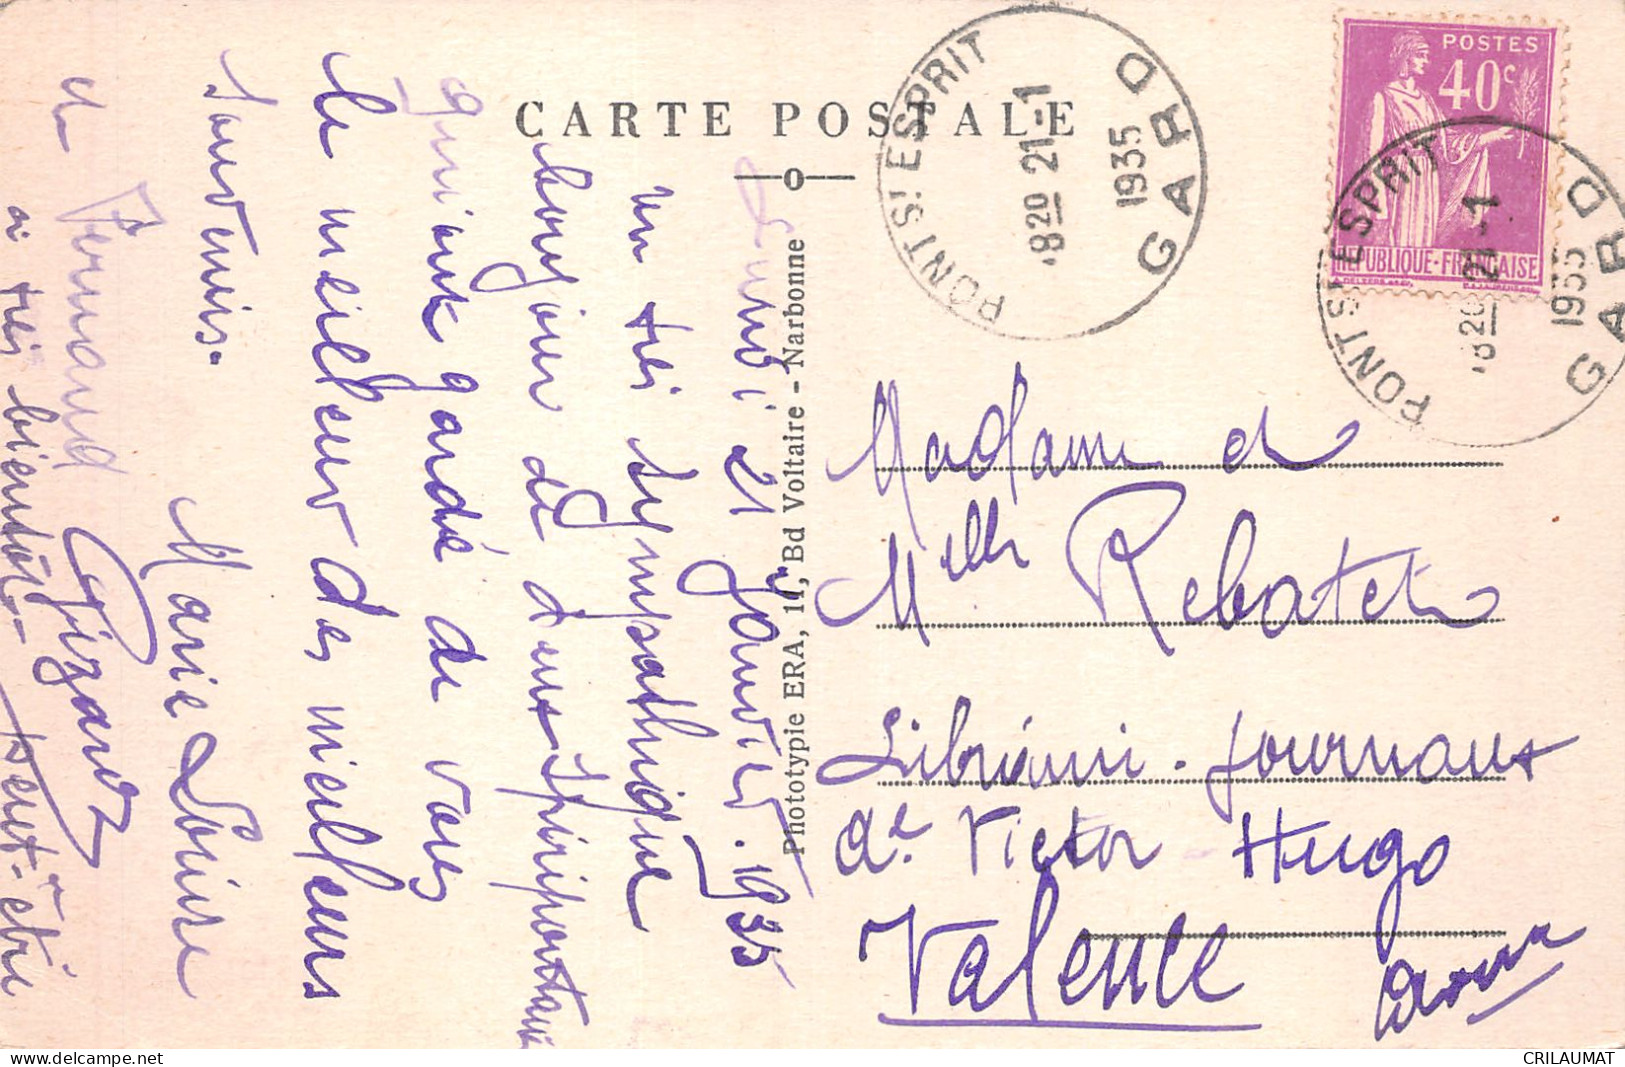 CARTE POSTALE
Lundi 21 Janvier. 1935
un très sympathique
bonjour de deux spiripontains
qui ont gardé de vous
le meilleur des meilleurs
souvenirs.
Marie Louise
et Fernand Gizard
à très bientôt - peut-être
Phototypie ERA, 11, Bd Voltaire - Narbonne
PONT ST ESPRIT
GARD
18 20 21-1
1935
POSTES
40c
REPUBLIQUE-FRANÇAISE
PONT ST ESPRIT
GARD
18 20 21-1
1935
Madame et
Melle Rebatet
Librairie - Journaux
Victor Hugo
Valence
Drôme
CRILAUMAT